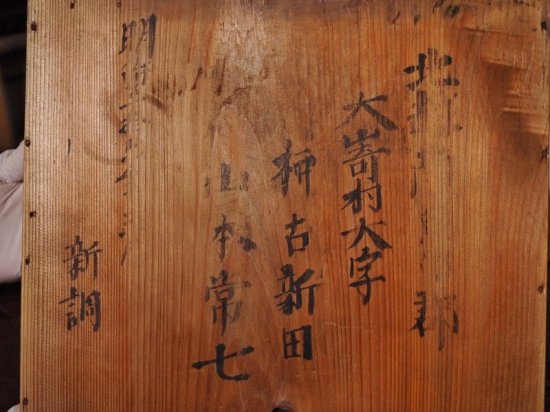 北郡
大嵜村大字
柳古新田
山本常七
明治
新調